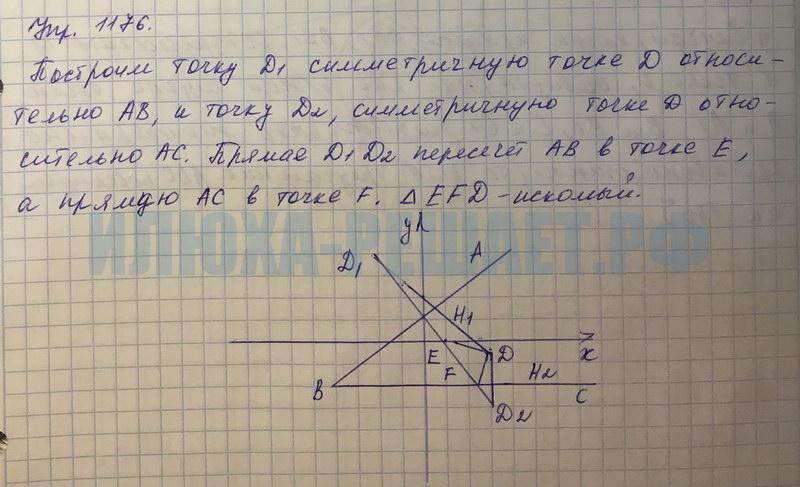 Упр. 1176.
Построим точку D₁ симметричную точке D относи-
тельно AB, и точку D₂, симметричную точке D отно-
сительно AC. Прямая D₁D₂ пересечёт AB в точке E,
а прямую AC в точке F. △EFD - искомый.
ИЛЮХА-РЕШАЕТ.РФ
y
D₁
A
H₁
E
D
x
F
H₂
B
C
D₂